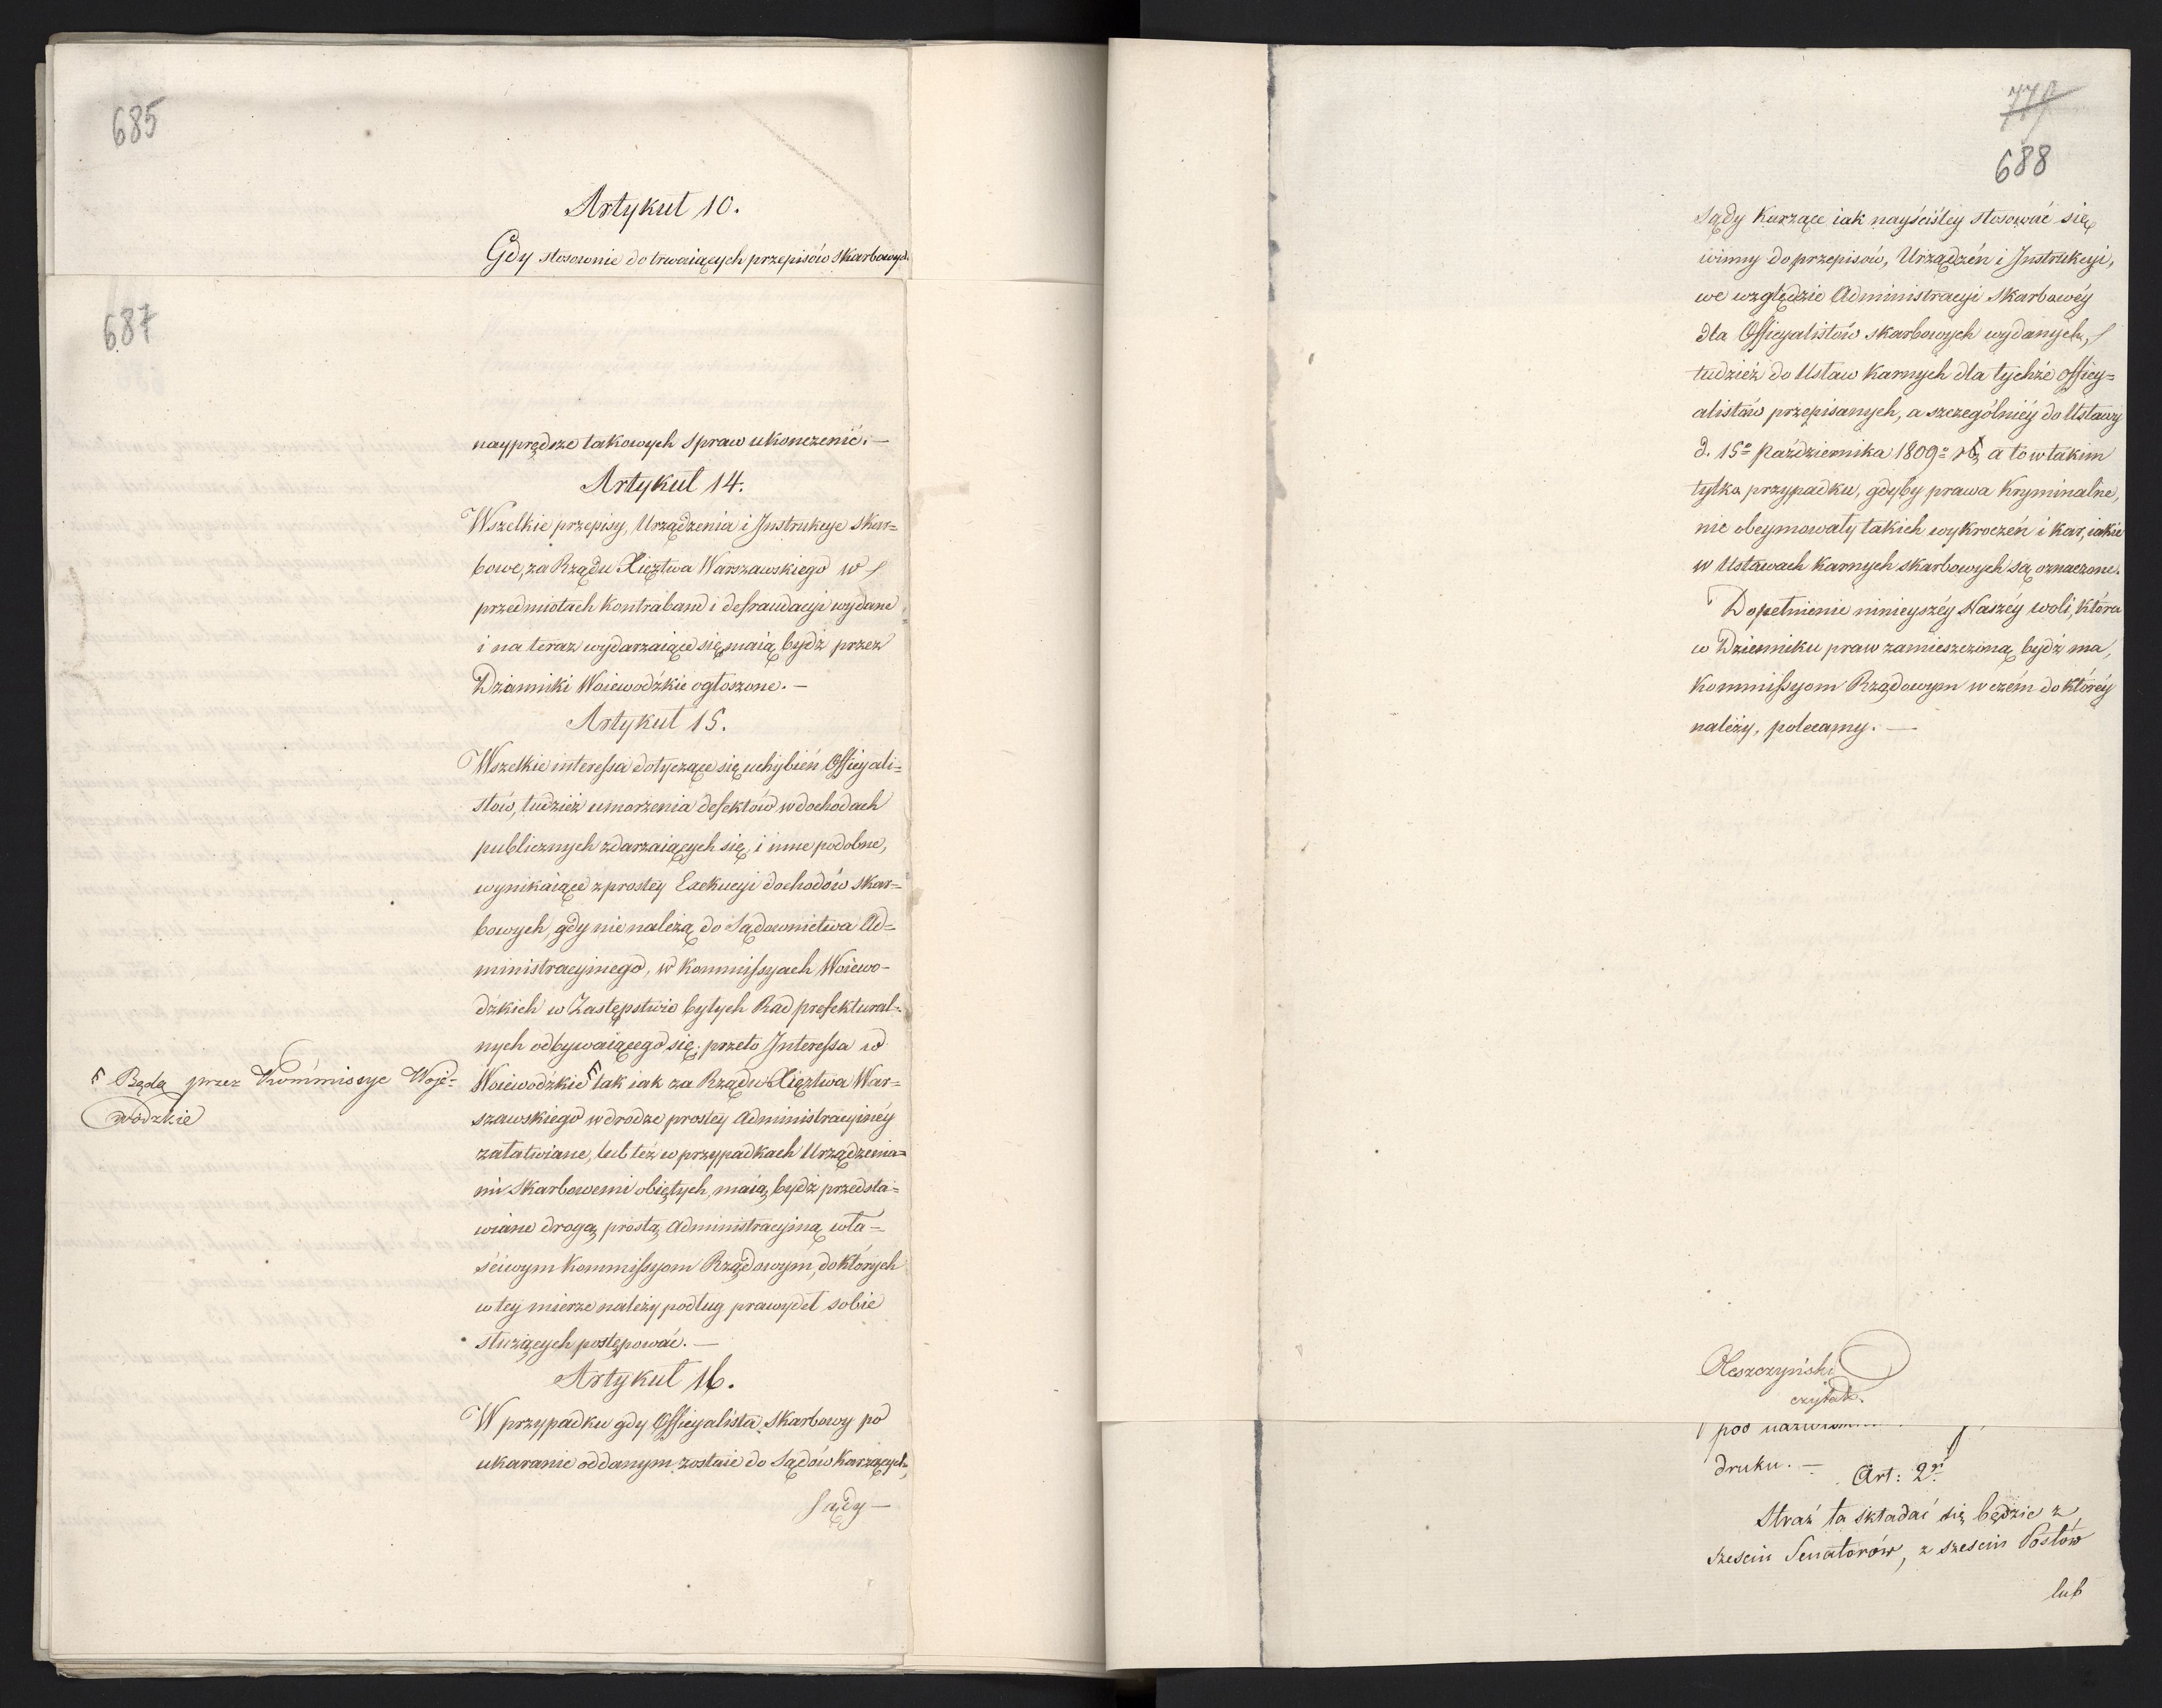 685
Artykuł 10.
Gdy stosownie do trwaiących przepisów Skarbowych
687
nayprędsze takowych spraw ukonczenie. —
Artykuł 14.
Wszelkie przepisy, Urządzenia i Instrukcye Skar=
bowe, za Rządu Xięztwa Warszawskiego w
przedmiotach Kontraband i defraudacyi wydane
i na teraz wydarzaiące się maią bydź przez
Dzienniki Woiewodzkie ogłoszone. —
Artykuł 15.
Wszelkie interessa dotyczące się uchybień Officyali=
stów, tudzież umorzenia defektów w dochodach
publicznych zdarzaiących się, i inne podobne,
wynikaiące z prostey Exekucyi dochodów skar=
bowych, gdy nie należą do Sądownictwa Ad=
ministracyinego, w Kommissyach Woiewo-
dzkich w Zastępstwie byłych Rad prefektural=
nych odbywaiącego się; przeto Interessa w
Woiewodzkie tak iak za Rządu Xięztwa War=
szawskiego w drodze prostey Administracyinéy
załatwiane, lub też w przypadkach Urządzenia=
mi Skarbowemi obiętych, maią bydź przedsta=
wiane drogą prostą Administracyiną wła=
ściwym Kommissyom Rządowym, do których
w tey mierze należy podług prawydeł sobie
służących postępować. —
Artykuł 16.
W przypadku gdy Officyalista Skarbowy po
ukaranie oddanym zostaie do Sądów Karzących,
Sądy —
Będą przez Kommissye Woje=
wodzkie
688
Sądy Karzące iak nayściśley stosować się
winny do przepisów, Urządzeń i Instrukcyi,
we względzie Administracyi Skarbowéy
dla Officyalistów skarbowych wydanych,
tudzież do Ustaw Karnych dla tychże Officy=
alistów przepisanych, a szczególniéy do Ustawy
d. 15º Października 1809º r. a to w takim
tylko przypadku, gdyby prawa Kryminalne,
nie obeymowały takich wykroczeń i kar, iakie
w Ustawach Karnych skarbowych są oznaczone.
Dopełnienie ninieyszéy Naszéy woli, która
w Dzienniku praw zamieszczoną bydź ma,
Kommissyom Rządowym w czém do któréy
należy, polecamy. —
Oleszczyński
czytał.
pod
druku. —
Art: 2gi
Straż ta składać się będzie z
sześciu Senatorów, z sześciu Posłów
lub